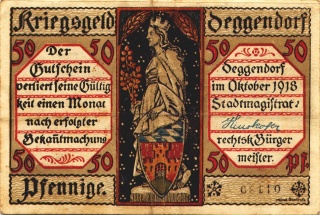 Kriegsgeld Deggendorf
50 50
Der
Gutschein
verliert seine Gültig
keit einen Monat
nach erfolgter
Bekañtmachung
50 50
Pfennige.
50 50
Deggendorf
im Oktober 1918
Stadtmagistrat:
rechtsk. Bürger
meister.
50 50
Pf.